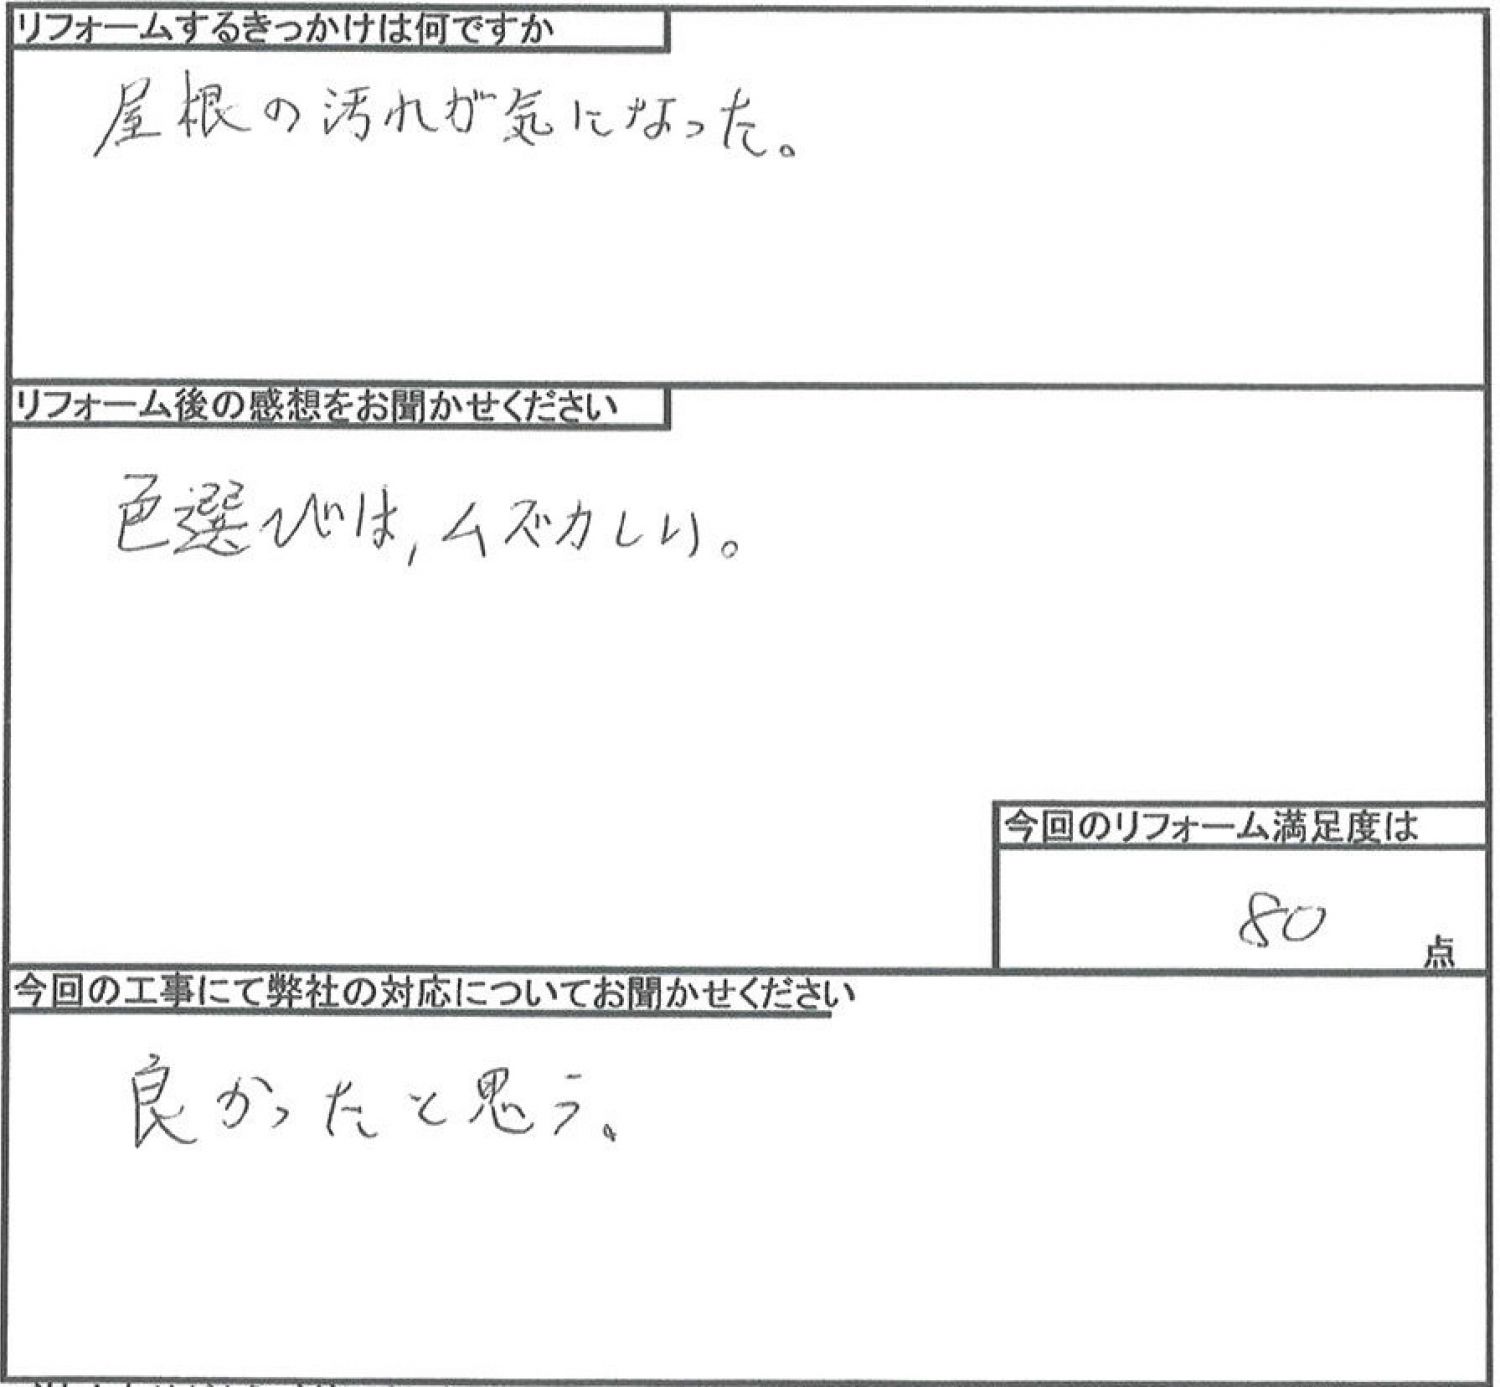 リフォームするきっかけは何ですか
屋根の汚れが気になった。
リフォーム後の感想をお聞かせください
色選びは,ムズカしい。
今回のリフォーム満足度は
80
点
今回の工事にて弊社の対応についてお聞かせください
良かったと思う。